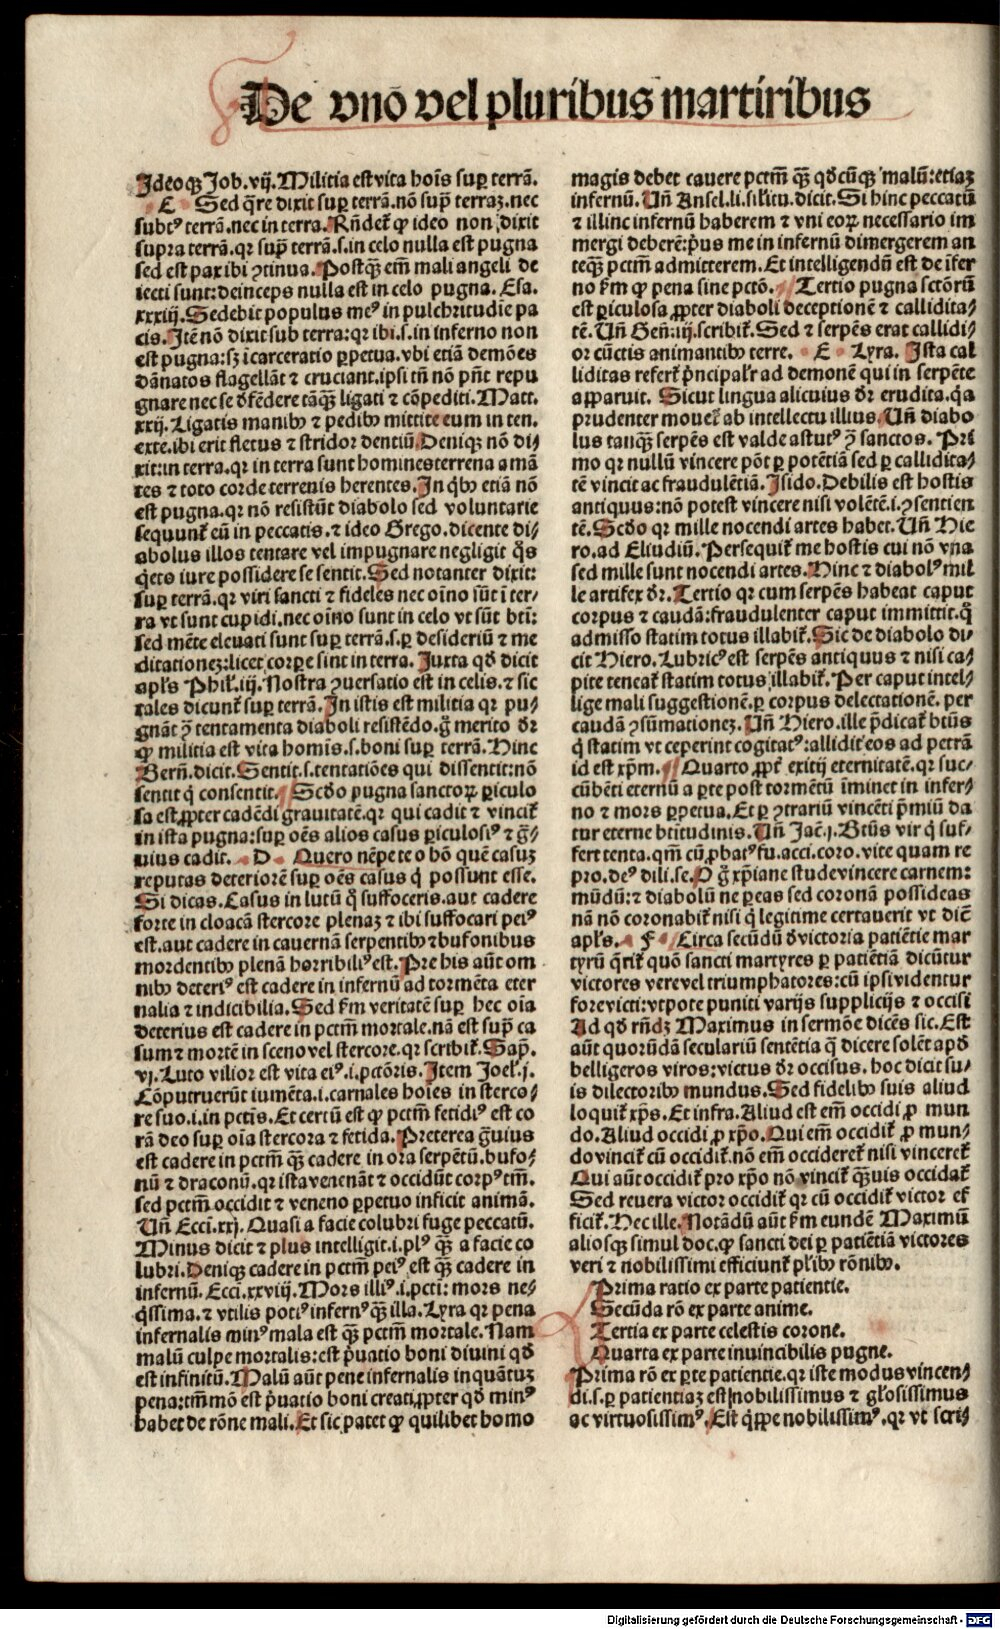 De vnō vel pluribus martiribus
Ideoqꝫ Job.vij.Militia est vita hoīs suꝑ terrā.
C Sed q̄re dixit suꝑ terrā.nō sup̄ terraꝫ.nec
subtꝰ terrā.nec in terra.Rn̄detˀ ꝙ ideo non dixit
supra terrā.qꝛ sup̄ terrā.s.in celo nulla est pugna
sed est pax ibi ꝯtinua.Postqꝫ̄ em̄ mali angeli de
iecti sunt:deinceps nulla est in celo pugna.Esa.
xxxij.Sedebit populus meꝰ in pulchritudīe pa
cis.Itē nō dixit sub terra:qꝛ ibi.s.in inferno non
est pugna:sꝫ īcarceratio ꝑpetua.vbi etiā demōes
dānatos flagellāt ⁊ cruciant.ipsi tn̄ nō pn̄t repu
gnare nec se defēdere tāqꝫ̄ ligati ⁊ cōpediti.Matt.
xxij.Ligatis manibꝰ ⁊ pedibꝰ mittite eum in ten.
exte.ibi erit fletus ⁊ stridor dentiū.Deniqꝫ nō di⸗
xit:in terra.qꝛ in terra sunt homines terrena amā
tes ⁊ toto corde terrenis herentes.In q̇bꝰ etiā nō
est pugna.qꝛ nō resistūt diabolo sed voluntarie
sequunt̉ eū in peccatis.⁊ ideo Grego.dicente di⸗
abolus illos tentare vel impugnare negligit q̄s
q̇eto iure possidere se sentit.Sed notanter dixit:
suꝑ terrā.qꝛ viri sancti ⁊ fideles nec oīno sūt ī ter⸗
ra vt sunt cupidi.nec oīno sunt in celo vt sūt bt̄i:
sed mēte eleuati sunt suꝑ terrā.s.ꝑ desideriū ⁊ me
ditationeꝫ:licet corꝑe sint in terra.Juxta qđ dicit
apl̄s Phil̉.iij.Nostra ꝯuersatio est in celis.⁊ sic
tales dicunt̉ suꝑ terrā.In istis est militia qꝛ pu⸗
gnāt ꝯ̄ tentamenta diaboli resistēdo.g̊ merito dr̄
ꝙ militia est vita homīs.s.boni suꝑ terrā.Hinc
Bern̄.dicit.Sentit.s.tentatiōes qui dissentit:nō
sentit q̇ consentit. Scďo pugna sanctoꝝ ꝑiculo
sa est.ꝓpter cadēdi grauitatē.qꝛ qui cadit ⁊ vincit̉
in ista pugna:suꝑ oēs alios casus ꝑiculosiꝰ ⁊ g̊⸗
uius cadit. D Quero nēpe te o bō quē casuꝫ
reputas deteriorē suꝑ oēs casus q̇ possunt esse.
Si dicas.Casus in lutū q̊ suffoceris.aut cadere
forte in cloacā stercore plenaꝫ ⁊ ibi suffocari peiꝰ
est.aut cadere in cauernā serpentibꝰ ⁊ bufonibus
mordentibꝰ plenā horribiliꝰ est.Pre his aūt om
nibꝰ deteriꝰ est cadere in infernū ad tormēta eter
nalia ⁊ indicibilia.Sed ẜm veritatē suꝑ hec oīa
deterius est cadere in pctm̄ mortale.nā est sup̄ ca
sum ⁊ mortē in sceno vel stercore.qꝛ scribit̉.Sap̄.
vj.Luto vilior est vita eiꝰ.i.pctōris.Item Joel̉.j.
Cōputruerūt iumēta.i.carnales hoīes in sterco⸗
re suo.i.in pctīs.Et certū est ꝙ pctm̄ fetidiꝰ est co
rā deo suꝑ oīa stercora ⁊ fetida.Preterea g̊uius
est cadere in pctm̄ qꝫ̄ cadere in ora serpētū.bufo⸗
nū ⁊ draconū.qꝛ ista venenāt ⁊ occidūt corpꝰ tm̄.
sed pctm̄ occidit ⁊ veneno ꝑpetuo inficit animā.
Un̄ Ecci.xxj.Quasi a facie colubri fuge peccatū.
Minus dicit ⁊ plus intelligit.i.plꝰ qꝫ̄ a facie co
lubri.Deniqꝫ cadere in pctm̄ peiꝰ est qꝫ̄ cadere in
infernū.Ecci.xxviij.Mors illiꝰ.i.pcti:mors ne⸗
q̇ssima.⁊ vtilis potiꝰ infernꝰ qꝫ̄ illa.Lyra qꝛ pena
infernalis minꝰ mala est qꝫ̄ pctm̄ mortale.Nam
malū culpe mortalis:est p̊uatio boni diuini qđ
est infinitū.Malū aūt pene infernalis inquātuꝫ
pena:tm̄mō est p̊uatio boni creati.ꝓpter qđ minꝰ
habet de rōne mali.Et sic patet ꝙ quilibet homo
magis debet cauere pctm̄ qꝫ̄ qđcūqꝫ malū:etiaꝫ
infernū.Un̄ Ansel.li.sil̉itu.dicit.Si hinc peccatū
⁊ illinc infernū haberem ⁊ vni eoꝝ necessario im
mergi deberē:p̊us me in infernū dimergerem an
teqꝫ̄ pctm̄ admitterem.Et intelligendū est de īfer
no ẜm ꝙ pena sine pctō. Tertio pugna sctōrū
est ꝑiculosa.ꝓpter diaboli deceptionē ⁊ callidita⸗
tē.Un̄ Gen̄.iij.scribit̉.Sed ⁊ serpēs erat callidi⸗
or cūctis animantibꝰ terre. E Lyra. Ista cal
liditas refert̉ p̊ncipalr̄ ad demonē qui in serpēte
apparuit.Sicut lingua alicuius dr̄ erudita.q̄a
prudenter mouet̉ ab intellectu illius.Un̄ diabo
lus tanqꝫ̄ serpēs est valde astutꝰ ꝯ̄ sanctos.Pri
mo qꝛ nullū vincere pōt ꝑ potētiā sed ꝑ callidita⸗
tē vincit ac fraudulētiā.Isido.Debilis est hostis
antiquus:nō potest vincere nisi volētē.i.ꝯsentien
tē.Scďo qꝛ mille nocendi artes habet.Un̄ Hie
ro.ad Eliudiū.Persequit̉ me hostis cui nō vna
sed mille sunt nocendi artes.Hinc ⁊ diabolꝰ mil
le artifex dr̄.Tertio qꝛ cum serpēs habeat caput
corpus ⁊ caudā:fraudulenter caput immittit.q̊
admisso statim totus illabit̉.Sic de diabolo di⸗
cit Hiero.Lubricꝰ est serpēs antiquus ⁊ nisi ca⸗
pite teneat̉ statim totus illabit̉.Per caput intel⸗
lige mali suggestionē.ꝑ corpus delectationē.per
caudā ꝯsūmationeꝫ.Un̄ Hiero.ille p̄dicat̉ btūs
q̇ statim vt ceperint cogitatꝰ:allidit eos ad petrā
id est xp̄m. Quarto ꝓpt̉ exitij eternitatē.qꝛ suc⸗
cūbēti eternū a ꝑte post tormētū īminet in infer⸗
no ⁊ mors ꝑpetua.Et ꝑ ꝯtrariū vincēti p̄miū da
tur eterne btītudinis.Un̄ Jac̄.j.Btūs vir q̇ suf⸗
fert tenta.qm̄ cū ꝓbatꝰ fu.acci.coro.vite quam re
pro.deꝰ dili.se.O g̊ xp̄iane stude vincere carnem:
mūdū:⁊ diabolū ne ꝑeas sed coronā possideas
nā nō coronabit̉ nisi q̇ legitime certauerit vt dic̄
apl̄s. F Circa secūdū ď victoria patiētie mar
tyrū q̄rit̉ quō sancti martyres ꝑ patiētiā dicūtur
victores vere vel triumphatores:cū ipsi videntur
fore victi:vtpote puniti varijs supplicijs ⁊ occisi
Ad qđ rn̄dꝫ Maximus in sermōe dicēs sic.Est
aūt quorūdā seculariū sentētia q̄ dicere solēt apđ
belligeros viros:victus dr̄ occisus.hoc dicit su⸗
is dilectoribꝰ mundus.Sed fidelibꝰ suis aliud
loquit̉ xp̄s.Et infra.Aliud est em̄ occidi ꝓ mun
do.Aliud occidi ꝓ xp̄o.Qui em̄ occidit̉ ꝓ mun⸗
do vincit̉ cū occidit̉.nō em̄ occideret̉ nisi vinceret̉
Qui aūt occidit̉ pro xp̄o nō vincit̉ qꝫ̄uis occidat̉
Sed reuera victor occidit̉ qꝛ cū occidit̉ victor ef
ficit̉.Hec ille.Notādū aūt ẜm eundē Maximū
aliosqꝫ simul doc.ꝙ sancti dei ꝑ patiētiā victores
veri ⁊ nobilissimi efficiunt̉ pl̉ibꝰ rōnibꝰ.
Prima ratio ex parte patientie.
Secūda rō ex parte anime.
Tertia ex parte celestis corone.
Quarta ex parte inuincibilis pugne.
Prima rō ex ꝑte patientie.qꝛ iste modus vincen⸗
di.s.ꝑ patientiaꝫ est nobilissimus ⁊ gl̄osissimus
ac virtuosissimꝰ.Est q̇ppe nobilissimꝰ.qꝛ vt scri⸗
Digitalisierung gefördert durch die Deutsche Forschungsgemeinschaft - DFG